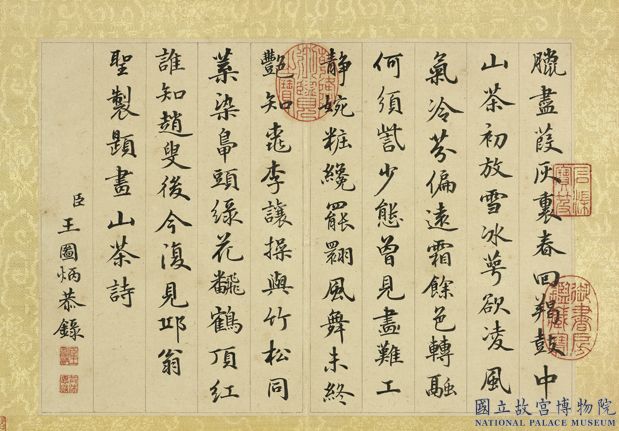 臘盡葭灰裏春回羯鼓中
山茶初放雪冰萼欲凌風
氣冷芬偏遠霜餘色轉融
何須訾少態曾見盡難工
靜婉粧纔罷翾風舞未終
艷知桃李讓操與竹松同
葉染鼻頭綠花翻鶴頂紅
誰知趙叟後今復見邛翁
聖製題畫山茶詩
臣王圖炳恭錄
國立故宮博物院
NATIONAL PALACE MUSEUM